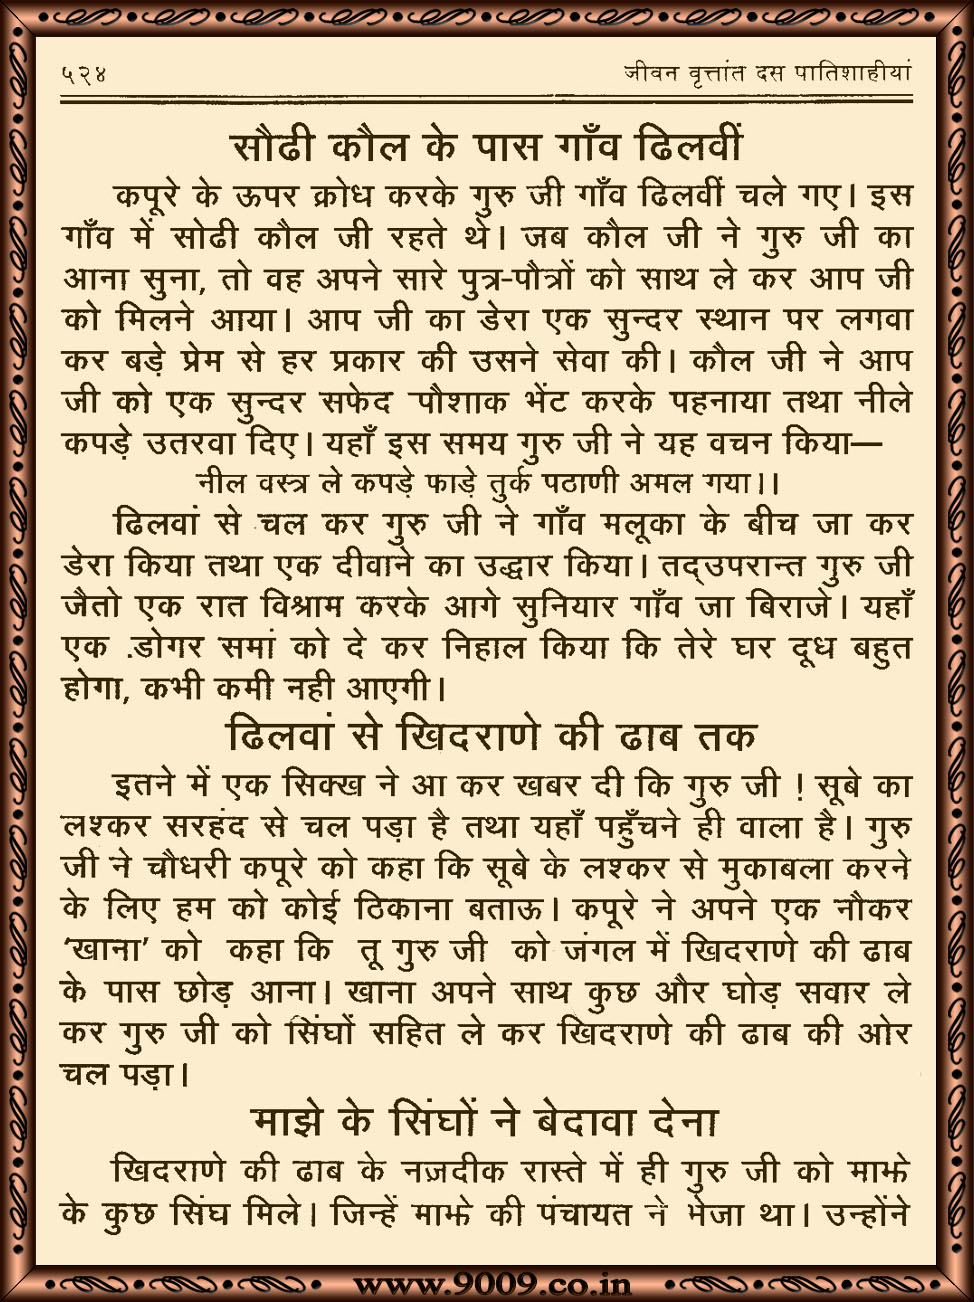 ५२४ जीवन वृत्तांत दस पातिशाहीयां
सौढी कौल के पास गाँव ढिलवीं
कपूरे के ऊपर क्रोध करके गुरु जी गाँव ढिलवीं चले गए। इस
गाँव में सोढी कौल जी रहते थे। जब कौल जी ने गुरु जी का
आना सुना, तो वह अपने सारे पुत्र-पौत्रों को साथ ले कर आप जी
को मिलने आया। आप जी का डेरा एक सुन्दर स्थान पर लगवा
कर बड़े प्रेम से हर प्रकार की उसने सेवा की। कौल जी ने आप
जी को एक सुन्दर सफेद पौशाक भेंट करके पहनाया तथा नीले
कपड़े उतरवा दिए। यहाँ इस समय गुरु जी ने यह वचन किया—
नील वस्त्र ले कपड़े फाड़े तुर्क पठाणी अमल गया।।
ढिलवां से चल कर गुरु जी ने गाँव मलूका के बीच जा कर
डेरा किया तथा एक दीवाने का उद्धार किया। तद्उपरान्त गुरु जी
जैतो एक रात विश्राम करके आगे सुनियार गाँव जा बिराजे। यहाँ
एक डोगर समां को दे कर निहाल किया कि तेरे घर दूध बहुत
होगा, कभी कमी नही आएगी।
ढिलवां से खिदराणे की ढाब तक
इतने में एक सिक्ख ने आ कर खबर दी कि गुरु जी ! सूबे का
लश्कर सरहंद से चल पड़ा है तथा यहाँ पहुँचने ही वाला है। गुरु
जी ने चौधरी कपूरे को कहा कि सूबे के लश्कर से मुकाबला करने
के लिए हम को कोई ठिकाना बताऊ। कपूरे ने अपने एक नौकर
‘खाना’ को कहा कि तू गुरु जी को जंगल में खिदराणे की ढाब
के पास छोड़ आना। खाना अपने साथ कुछ और घोड़ सवार ले
कर गुरु जी को सिंघों सहित ले कर खिदराणे की ढाब की ओर
चल पड़ा।
माझे के सिंघों ने बेदावा देना
खिदराणे की ढाब के नज़दीक रास्ते में ही गुरु जी को माझे
के कुछ सिंघ मिले। जिन्हें माझे की पंचायत ने भेजा था। उन्होंने
www.9009.co.in